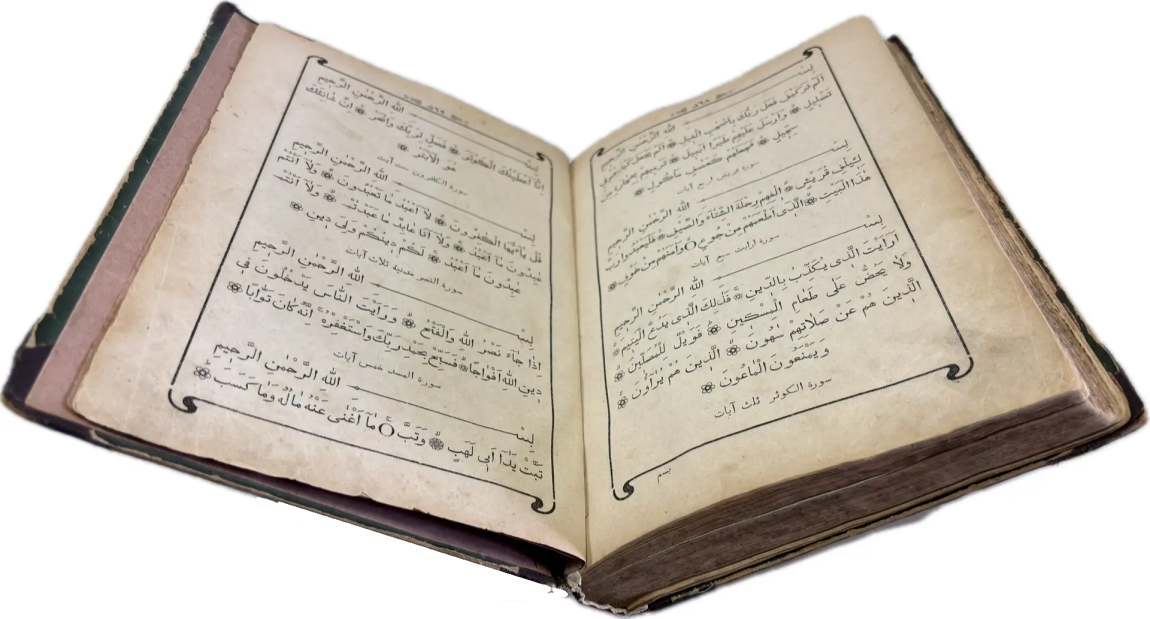 بِسْمِ اللهِ الرَّحْمٰنِ الرَّحِيمِ
اَلَمْ تَرَ كَيْفَ فَعَلَ رَبُّكَ بِاَصْحٰبِ الْفيلِ ❁ اَلَمْ يَجْعَلْ كَيْدَهُمْ فى
تَضْليلٍ ❁ وَاَرْسَلَ عَلَيْهِمْ طَيْرًا اَبَابيلَ ❁ تَرْميهِمْ بِحِجَارَةٍ مِنْ
سِجّيلٍ ❁ فَجَعَلَهُمْ كَعَصْفٍ مَأْكُولٍ ❁
سورة قريش اربع آيات
بِسْمِ اللهِ الرَّحْمٰنِ الرَّحِيمِ
لِايلٰفِ قُرَيْشٍ ❁ ايلٰفِهِمْ رِحْلَةَ الشِّتَاءِ وَالصَّيْفِ ❁ فَلْيَعْبُدُوا رَبَّ
هٰذَا الْبَيْتِ ❁ اَلَّذى اَطْعَمَهُمْ مِنْ جُوعٍ ۝ وَاٰمَنَهُمْ مِنْ خَوْفٍ ❁
سورة ارايت سبع آيات
بِسْمِ اللهِ الرَّحْمٰنِ الرَّحِيمِ
اَرَاَيْتَ الَّذى يُكَذِّبُ بِالدّينِ ❁ فَذٰلِكَ الَّذى يَدُعُّ الْيَتيمَ ❁
وَلَا يَحُضُّ عَلٰى طَعَامِ الْمِسْكينِ ❁ فَوَيْلٌ لِلْمُصَلّينَ ❁
اَلَّذينَ هُمْ عَنْ صَلَاتِهِمْ سَاهُونَ ❁ اَلَّذينَ هُمْ يُرَاؤُنَ ❁
وَيَمْنَعُونَ الْمَاعُونَ ❁
سورة الكوثر ثلث آيات
بسم
بِسْمِ اللهِ الرَّحْمٰنِ الرَّحِيمِ
اِنَّا اَعْطَيْنَاكَ الْكَوْثَرَ ❁ فَصَلِّ لِرَبِّكَ وَانْحَرْ ❁ اِنَّ شَانِئَكَ
هُوَ الْاَبْتَرُ ❁
سورة الكافرون ست آيات
بِسْمِ اللهِ الرَّحْمٰنِ الرَّحِيمِ
قُلْ يَآ اَيُّهَا الْكَافِرُونَ ❁ لَآ اَعْبُدُ مَا تَعْبُدُونَ ❁ وَلَآ اَنْتُمْ
عَابِدُونَ مَآ اَعْبُدُ ❁ وَلَآ اَنَا عَابِدٌ مَا عَبَدْتُمْ ❁ وَلَآ اَنْتُمْ
عَابِدُونَ مَآ اَعْبُدُ ❁ لَكُمْ دينُكُمْ وَلِىَ دينِ ❁
سورة النصر مدنية ثلاث آيات
بِسْمِ اللهِ الرَّحْمٰنِ الرَّحِيمِ
اِذَا جَآءَ نَصْرُ اللهِ وَالْفَتْحُ ❁ وَرَاَيْتَ النَّاسَ يَدْخُلُونَ فى
دينِ اللهِ اَفْوَاجًا ❁ فَسَبِّحْ بِحَمْدِ رَبِّكَ وَاسْتَغْفِرْهُ اِنَّهُ كَانَ تَوَّابًا ❁
سورة المسد خمس آيات
بِسْمِ اللهِ الرَّحْمٰنِ الرَّحِيمِ
تَبَّتْ يَدَآ اَبى لَهَبٍ ❁ وَتَبَّ ۝ مَآ اَغْنٰى عَنْهُ مَالُهُ وَمَا كَسَبَ ❁